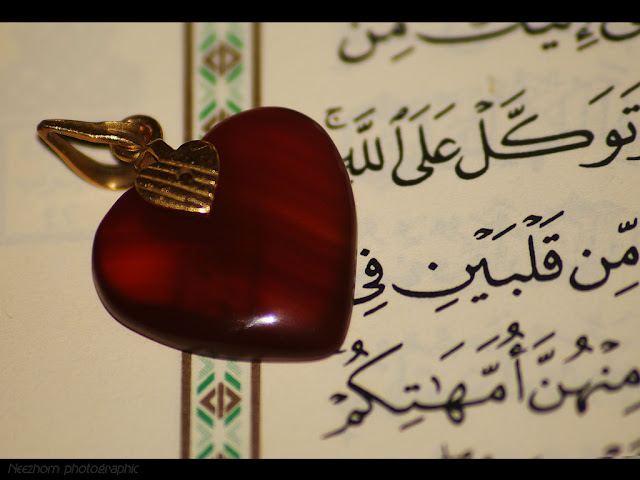 إِلَيْكَ مِن
وَتَوَكَّلْ عَلَى ٱللَّهِ ۚ
مِّن قَلْبَيْنِ فِى
مِنْهُنَّ أُمَّهَٰتِكُمْ
Neezhom photographic